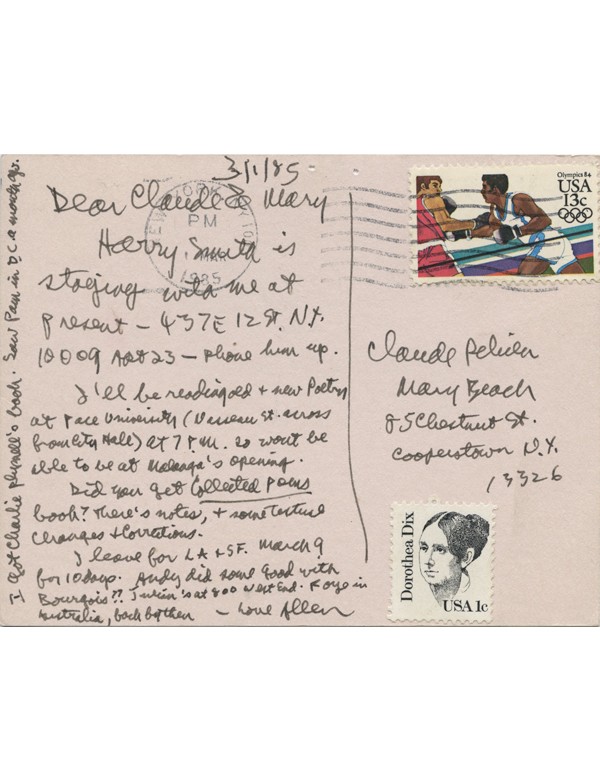 3/1/85
Dear Claude & Mary
Harry Smith is
staying with me at
present — 437 E 12 St. N.Y.
10009 Apt 23 — phone him up.
I'll be reading old + new Poetry
at Pace University (Nassau St. across
from City Hall) at 7 P.M. so wont be
able to be at Malanga's opening.
Did you get Collected Poems
book? There's notes, + some texture
changes + corrections.
I leave for LA + SF. March 9
for 10 days. Andy did some good with
Bourgois?? Julian's at 800 West End. Foye in
Australia, back by then — Love Allen
I got Charlie Plymell's book. Saw Pam in DC a month ago.
NEW YORK
PM
1985
Olympics 84
USA
13c
Claude Pelieu
Mary Beach
85 Chestnut St.
Cooperstown N.Y.
13326
Dorothea Dix
USA 1c